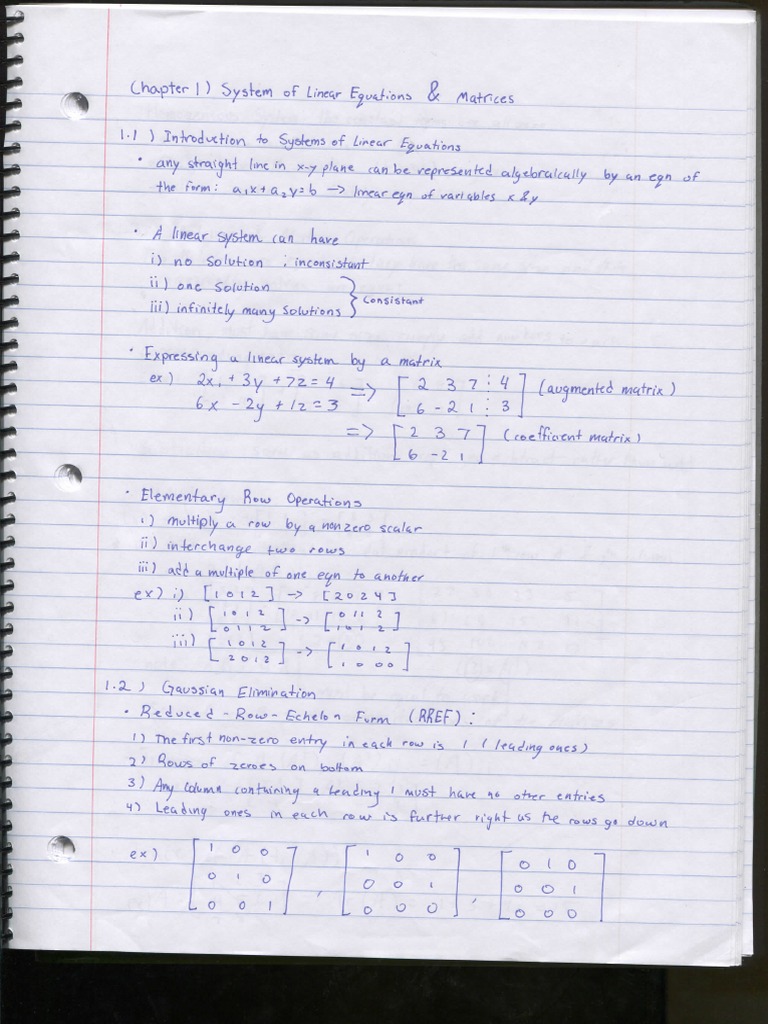 Chapter 1) System of Linear Equations & Matrices
1.1) Introduction to Systems of Linear Equations
• any straight line in x-y plane can be represented algebraically by an eqn of
the form: a₁x + a₂y = b → linear eqn of variables x & y
• A linear system can have
i) no solution : inconsistant
ii) one solution
iii) infinitely many solutions } consistant
• Expressing a linear system by a matrix
ex) 2x, + 3y + 7z = 4 => [ 2 3 7 ⋮ 4 ] (augmented matrix)
6x - 2y + 1z = 3 [ 6 -2 1 ⋮ 3 ]
=> [ 2 3 7 ] (coefficient matrix)
[ 6 -2 1 ]
• Elementary Row Operations
i) multiply a row by a nonzero scalar
ii) interchange two rows
iii) add a multiple of one eqn to another
ex) i) [1 0 1 2] → [2 0 2 4]
ii) [1 0 1 2] → [0 1 1 2]
[0 1 1 2] [1 0 1 2]
iii) [1 0 1 2] → [1 0 1 2]
[2 0 1 2] [1 0 0 0]
1.2) Gaussian Elimination
• Reduced-Row-Echelon Form (RREF):
1) The first non-zero entry in each row is 1 (leading ones)
2) Rows of zeroes on bottom
3) Any column containing a leading 1 must have no other entries
4) Leading ones in each row is further right as the rows go down
ex) [1 0 0] , [1 0 0] , [0 1 0]
[0 1 0] [0 0 1] [0 0 1]
[0 0 1] [0 0 0] [0 0 0]